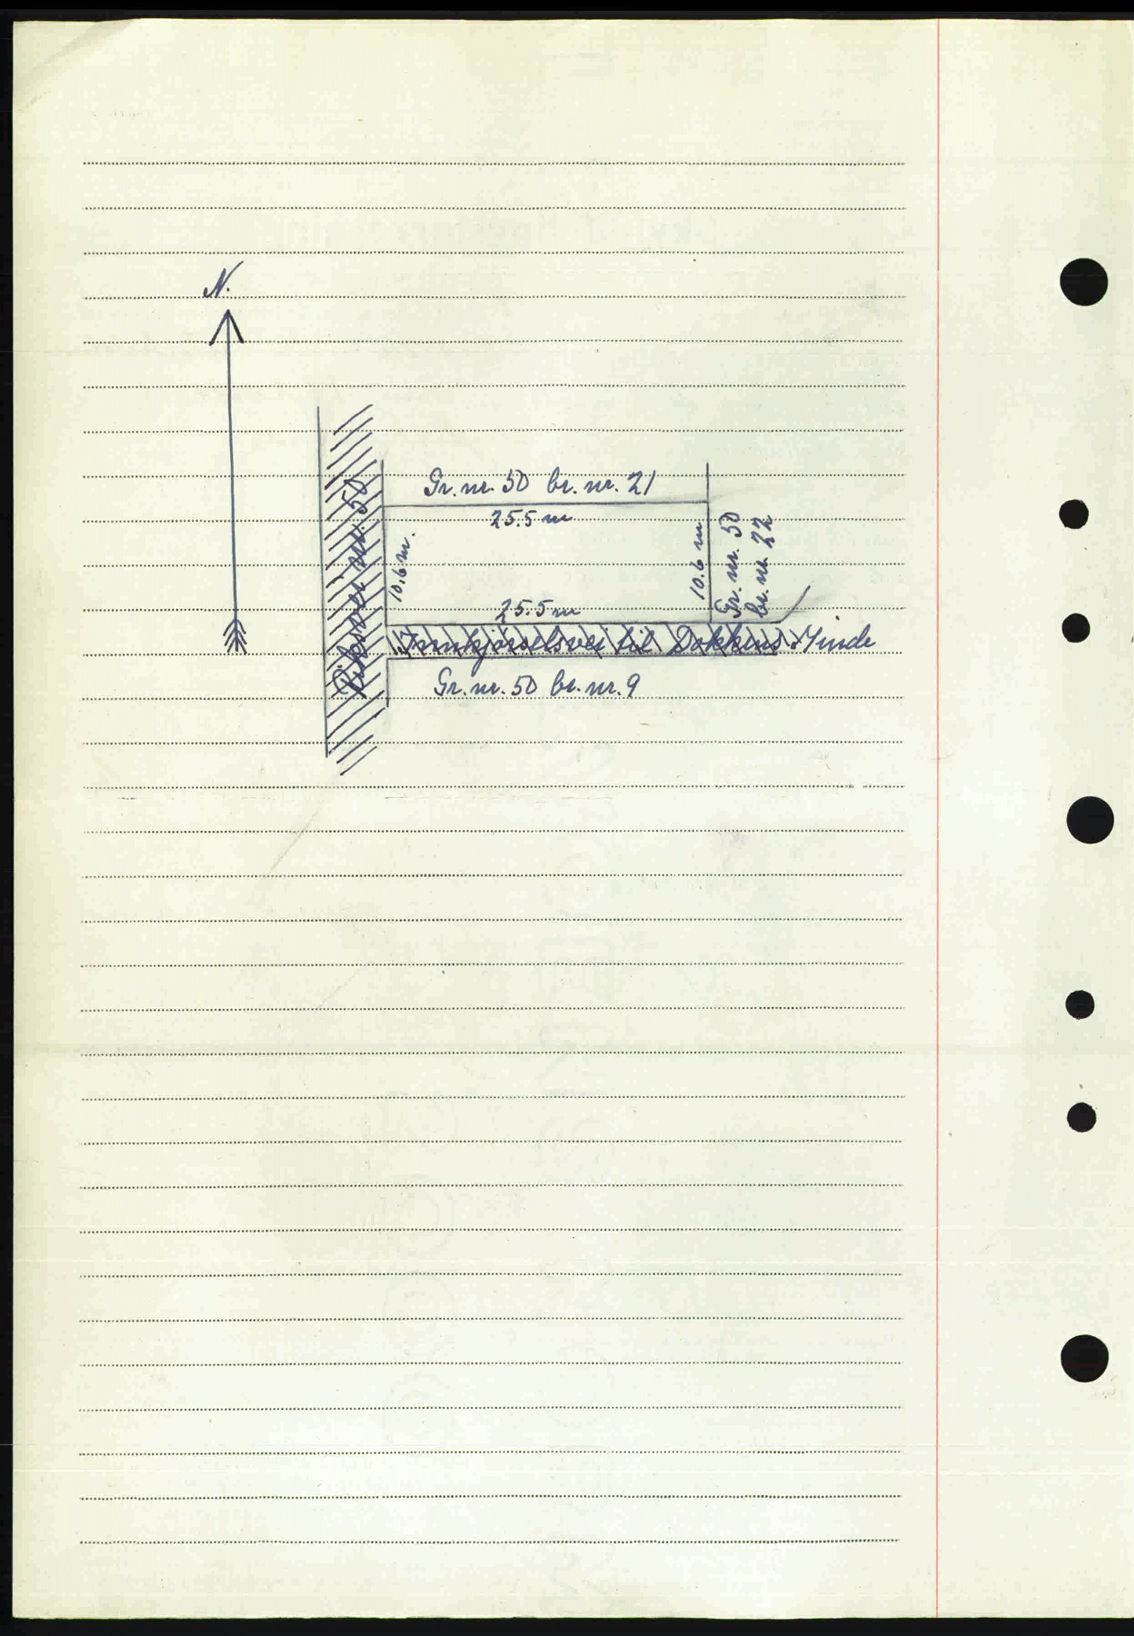 N.
Gr. nr. 50 br. nr. 21
25.5 m
10.6 m.
10.6 m
Gr. nr. 50
br. nr. 22
Riksvei nr. 50
25.5 m
Innkjörselsvei til Dokkens Minde
Gr. nr. 50 br. nr. 9